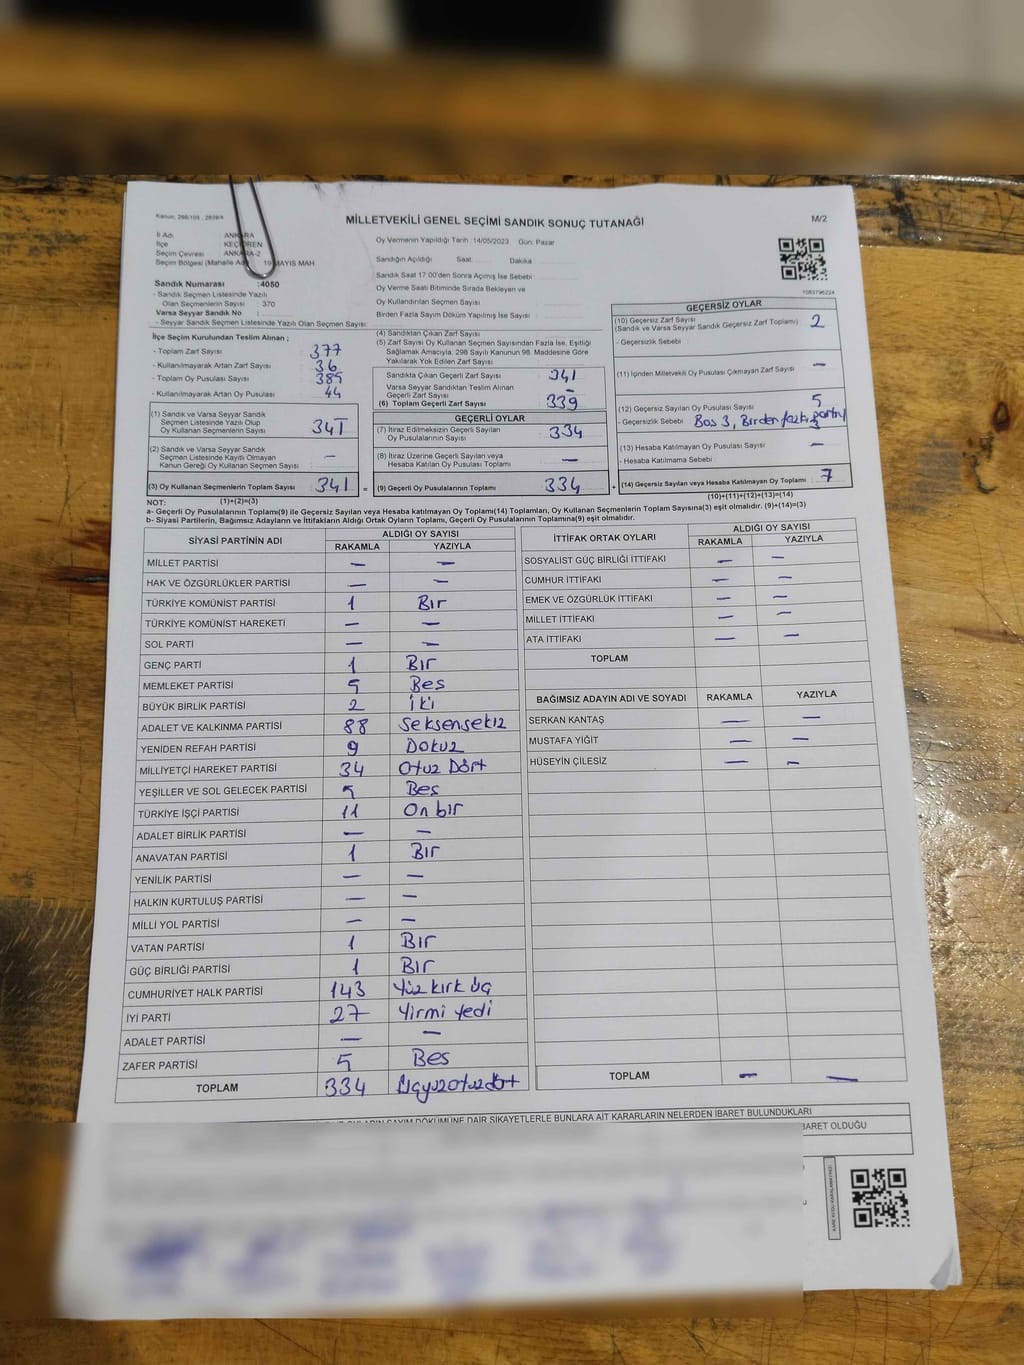 Kanun; 298/105 , 2839/4
MİLLETVEKİLİ GENEL SEÇİMİ SANDIK SONUÇ TUTANAĞI
M/2
İl Adı ANKARA
İlçe KEÇİÖREN
Seçim Çevresi ANKARA-2
Seçim Bölgesi (Mahalle Adı) 19 MAYIS MAH.
Oy Vermenin Yapıldığı Tarih :14/05/2023 Gün: Pazar
Sandığın Açıldığı Saat Dakika
Sandık Saat 17:00'den Sonra Açımış İse Sebebi
Oy Verme Saati Bitiminde Sırada Bekleyen ve
Oy Kullandırılan Seçmen Sayısı
Birden Fazla Sayım Döküm Yapılmış İse Sayısı
Sandık Numarası :4050
- Sandık Seçmen Listesinde Yazılı
Olan Seçmenlerin Sayısı : 370
Varsa Seyyar Sandık No :
- Seyyar Sandık Seçmen Listesinde Yazılı Olan Seçmen Sayısı
İlçe Seçim Kurulundan Teslim Alınan ;
- Toplam Zarf Sayısı : 377
- Kullanılmayarak Artan Zarf Sayısı : 36
- Toplam Oy Pusulası Sayısı : 385
- Kullanılmayarak Artan Oy Pusulası : 44
(1) Sandık ve Varsa Seyyar Sandık
Seçmen Listesinde Yazılı Olup
Oy Kullanan Seçmenlerin Sayısı : 341
(2) Sandık ve Varsa Seyyar Sandık
Seçmen Listesinde Kayıtlı Olmayan
Kanun Gereği Oy Kullanan Seçmen Sayısı : —
(3) Oy Kullanan Seçmenlerin Toplam Sayısı : 341 =
(1)+(2)=(3)
(4) Sandıktan Çıkan Zarf Sayısı
(5) Zarf Sayısı Oy Kullanan Seçmen Sayısından Fazla İse, Eşitliği
Sağlamak Amacıyla, 298 Sayılı Kanunun 98. Maddesine Göre
Yakılarak Yok Edilen Zarf Sayısı
Sandıkta Çıkan Geçerli Zarf Sayısı : 341
Varsa Seyyar Sandıktan Teslim Alınan
Geçerli Zarf Sayısı : —
(6) Toplam Geçerli Zarf Sayısı : 339
GEÇERLİ OYLAR
(7) İtiraz Edilmeksizin Geçerli Sayılan
Oy Pusulalarının Sayısı : 334
(8) İtiraz Üzerine Geçerli Sayılan veya
Hesaba Katılan Oy Pusulası Toplamı : —
(9) Geçerli Oy Pusulalarının Toplamı : 334 +
1083796224
GEÇERSİZ OYLAR
(10) Geçersiz Zarf Sayısı : 2
(Sandık ve Varsa Seyyar Sandık Geçersiz Zarf Toplamı)
- Geçersizlik Sebebi :
(11) İçinden Milletvekili Oy Pusulası Çıkmayan Zarf Sayısı : —
(12) Geçersiz Sayılan Oy Pusulası Sayısı : 5
- Geçersizlik Sebebi : Boş 3, Birden fazla parti
(13) Hesaba Katılmayan Oy Pusulası Sayısı : —
- Hesaba Katılmama Sebebi :
(14) Geçersiz Sayılan veya Hesaba Katılmayan Oy Toplamı : 7
(10)+(11)+(12)+(13)=(14)
NOT:
a- Geçerli Oy Pusulalarının Toplamı(9) ile Geçersiz Sayılan veya Hesaba katılmayan Oy Toplamı(14) Toplamları, Oy Kullanan Seçmenlerin Toplam Sayısına(3) eşit olmalıdır. (9)+(14)=(3)
b- Siyasi Partilerin, Bağımsız Adayların ve İttifakların Aldığı Ortak Oyların Toplamı, Geçerli Oy Pusulalarının Toplamına(9) eşit olmalıdır.
SİYASİ PARTİNİN ADI ALDIĞI OY SAYISI
RAKAMLA YAZIYLA
MİLLET PARTİSİ — —
HAK VE ÖZGÜRLÜKLER PARTİSİ — —
TÜRKİYE KOMÜNİST PARTİSİ 1 Bir
TÜRKİYE KOMÜNİST HAREKETİ — —
SOL PARTİ — —
GENÇ PARTİ 1 Bir
MEMLEKET PARTİSİ 5 Bes
BÜYÜK BİRLİK PARTİSİ 2 iki
ADALET VE KALKINMA PARTİSİ 88 Seksensekiz
YENİDEN REFAH PARTİSİ 9 Dokuz
MİLLİYETÇİ HAREKET PARTİSİ 34 Otuz Dört
YEŞİLLER VE SOL GELECEK PARTİSİ 5 Bes
TÜRKİYE İŞÇİ PARTİSİ 11 On bir
ADALET BİRLİK PARTİSİ — —
ANAVATAN PARTİSİ 1 Bir
YENİLİK PARTİSİ — —
HALKIN KURTULUŞ PARTİSİ — —
MİLLİ YOL PARTİSİ — —
VATAN PARTİSİ 1 Bir
GÜÇ BİRLİĞİ PARTİSİ 1 Bir
CUMHURİYET HALK PARTİSİ 143 Yüz kırk üç
İYİ PARTİ 27 Yirmi yedi
ADALET PARTİSİ — —
ZAFER PARTİSİ 5 Bes
TOPLAM 334 Üçyüzotuzdört
İTTİFAK ORTAK OYLARI ALDIĞI OY SAYISI
RAKAMLA YAZIYLA
SOSYALİST GÜÇ BİRLİĞİ İTTİFAKI — —
CUMHUR İTTİFAKI — —
EMEK VE ÖZGÜRLÜK İTTİFAKI — —
MİLLET İTTİFAKI — —
ATA İTTİFAKI — —
TOPLAM
BAĞIMSIZ ADAYIN ADI VE SOYADI RAKAMLA YAZIYLA
SERKAN KANTAŞ — —
MUSTAFA YİĞİT — —
HÜSEYİN ÇİLESİZ — —
TOPLAM — —
SAYIM DÖKÜMÜNE DAİR ŞİKAYETLERLE BUNLARA AİT KARARLARIN NELERDEN İBARET BULUNDUKLARI
İBARET OLDUĞU